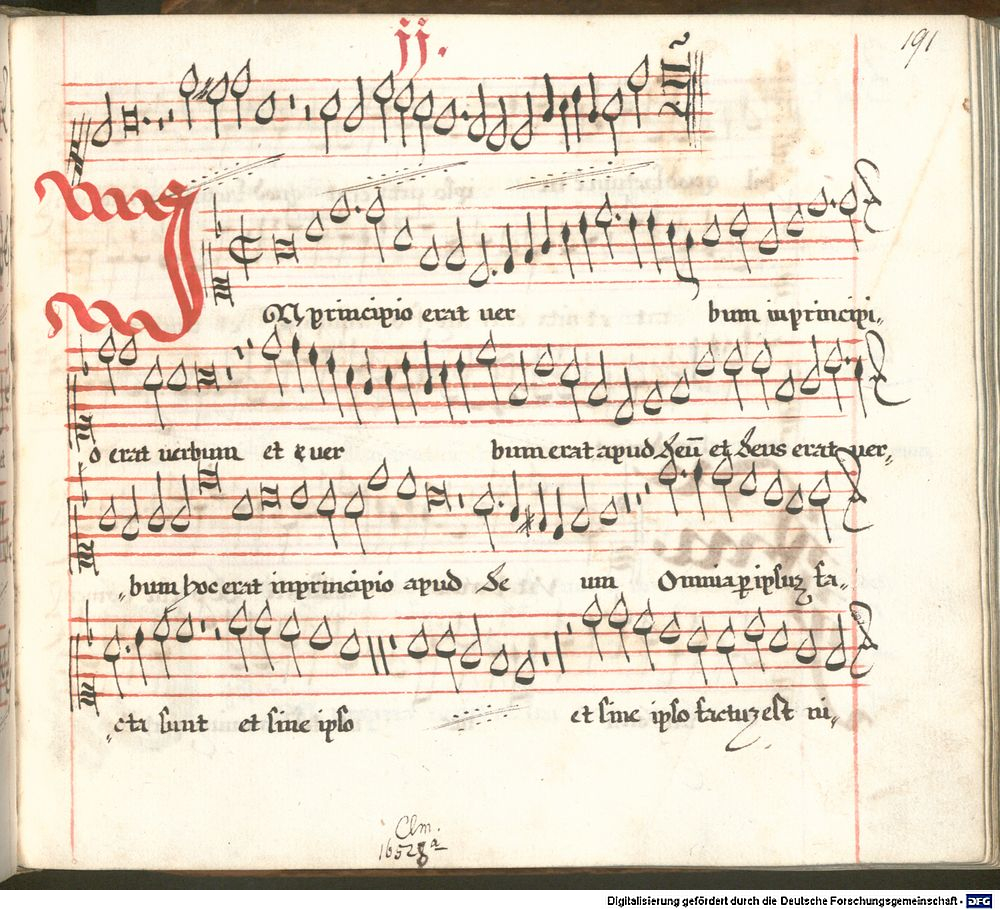 jj.
191
IN principio erat uer bum in principi-
o erat uerbum et uer bum erat apud deū et deus erat uer-
bum hoc erat in principio apud de um Omnia per ipsuz fa-
cta sunt et sine ipso et sine ipso factuz est ni-
Clm.
Digitalisierung gefördert durch die Deutsche Forschungsgemeinschaft - DFG